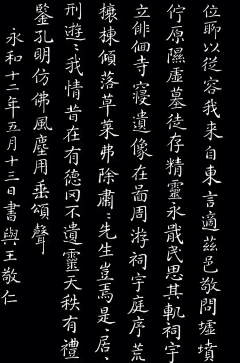 位聊以從容我來自東言適茲邑敬問墟墳
佇原隰虛墓徒存精靈永戢民思其軌祠宇
立俳佪寺寢遺像在啚周游祠宇庭序荒
榱棟傾落草萊弗除肅〻先生豈焉是居〻
刑遊〻我情昔在有德罔不遺靈天秩有禮
鑒孔明仿佛風塵用垂頌聲
永和十二年五月十三日書與王敬仁